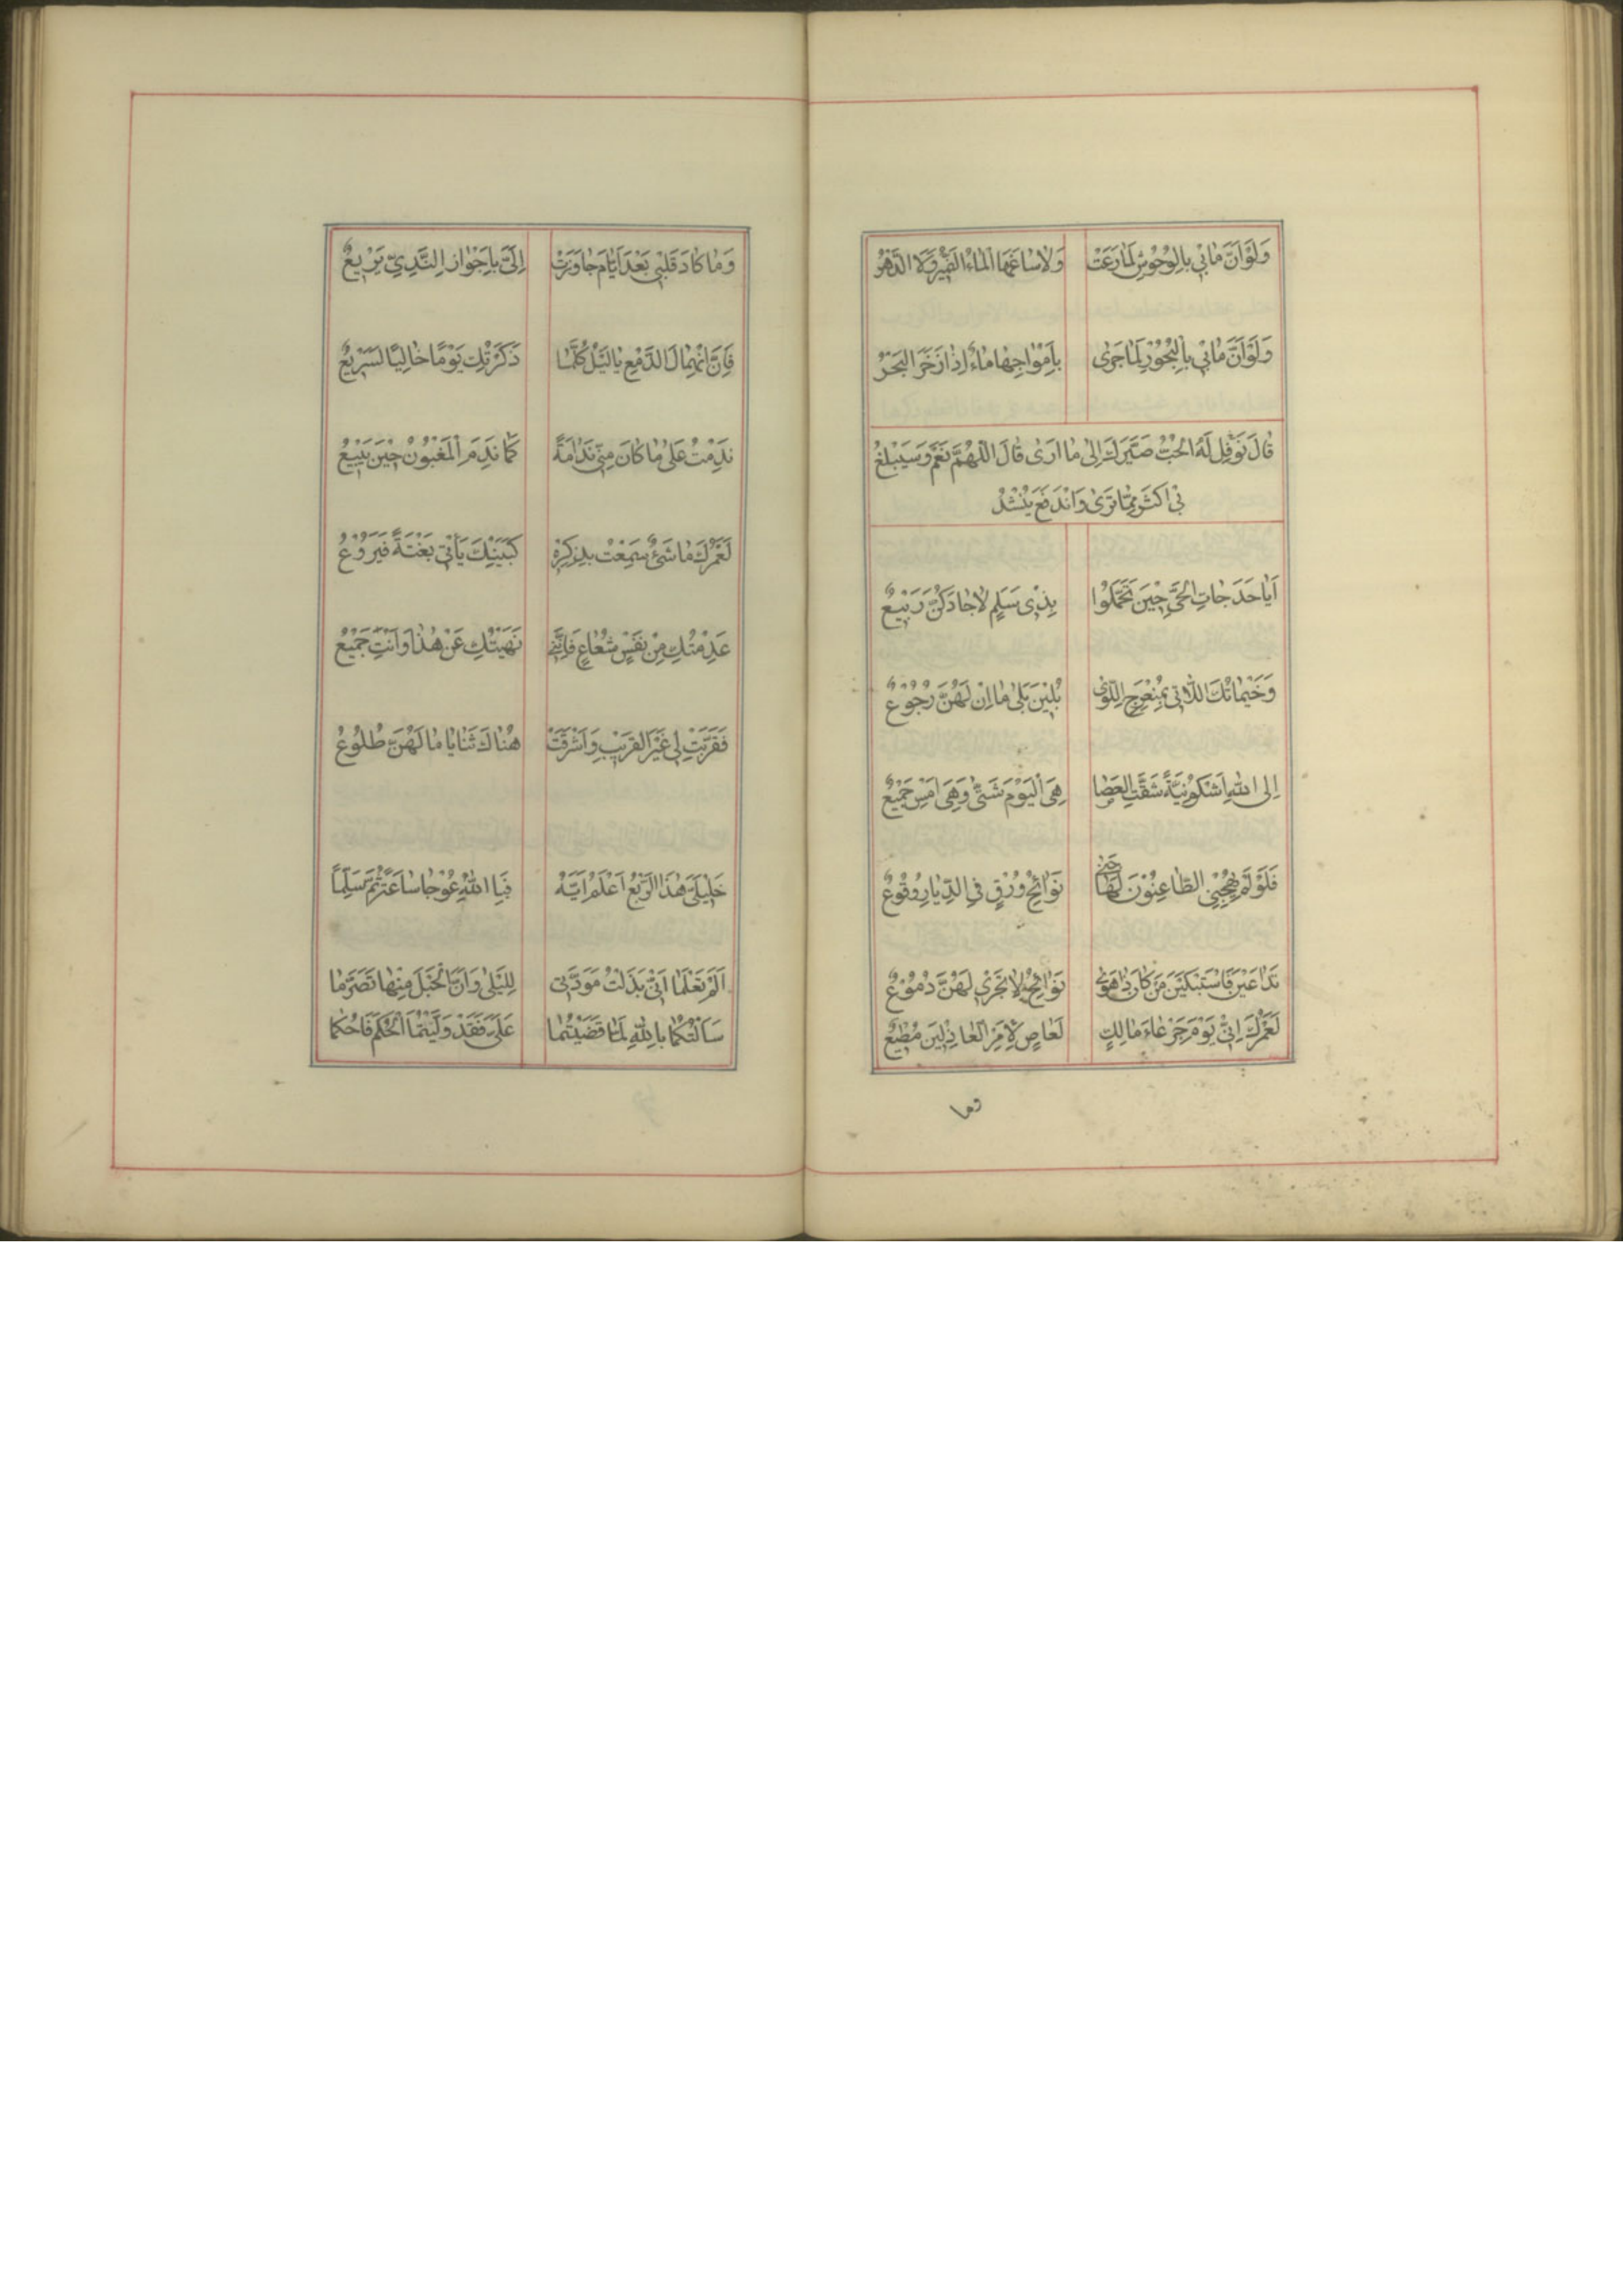 وَلَوْاَنَّ مٰابْى بِالْوُحُوْشِ لَمٰارَعَتْ وَلاٰسٰاغَهَا الْمٰاءُ النَّمِيْرُ وَلاَ الدَّهْرُ
وَلَوْاَنَّ مٰابْى بِالْبُحُوْرِ لَمٰاجَرٰى بِاَمْوٰاجِهٰا مٰاءٌ اِذٰا زَخَرَ الْبَحْرُ
قٰالَ نَوْفِل لَهُ الْحُبُّ صَيَّرَكَ اِلٰى مٰا اَرٰى قٰالَ اللّٰهُمَّ نَعَمْ وَسَيَبْلُغُ
بْى اَكْثَرَ مِمّٰا تَرٰى وَانْدَفَعَ يُنْشِدُ
اَيٰاحَدَجٰاتِ الْحَيِّ حِيْنَ تَحَمَّلُوا بِذِى سَلَمٍ لاٰجٰادَكُنَّ رَبْيْعٌ
وَخَيْمٰاتُكَ اللاّٰتْى بِمُنْعَرِجِ اللِّوٰى بُلِيْنَ بَلٰى مٰااِنْ لَهُنَّ رُجُوْعٌ
اِلى اللّٰهِ اَشْكُوْ نِيَّةً شَقَّتِ الْعَصٰا هِىَ الْيَوْمَ شَتّٰى وَهِىَ اَمْسِ جَمْيْعٌ
فَلَوْ لَمْ يَهِجْنِى الظّٰاعِنُوْنَ لَهٰاجَنْى نَوٰائِحُ وُرْقٍ فِى الدِّيٰارِ وُقُوْعٌ
تَدٰاعَيْنَ فَاسْتَبْكَيْنَ مَنْ كٰانَ ذٰاهَوٰى نَوٰائِحُ لاٰتَجْرْى لَهُنَّ دُمُوْعٌ
لَعَمْرُكَ اِنّْى يَوْمَ جَرْعٰاءَ مٰالِكٍ لَعٰاصٍ لِاَمْرِ الْعٰاذِلِيْنَ مُطْيْعٌ
وما
وَمٰا كٰادَ قَلْبْى بَعْدَ اَيّٰامَ جٰاوَزَتْ اِلَىَّ بِاَجْوٰازِ النَّدِيِّ يَرْيْعٌ
فَاِنَّ انْهِمٰالَ الدَّمْعِ يٰالَيْلُ كُلَّمٰا ذَكَرْتُكِ يَوْمًا خٰالِيًا لَسَرْيْعٌ
نَدِمْتُ عَلٰى مٰا كٰانَ مِنّْى نَدٰامَةً كَمٰا نَدِمَ الْمَغْبُوْنُ حِيْنَ يَبْيْعُ
لَعَمْرُكَ مٰا شَيْءٌ سَمِعْتُ بِذِكْرِهِ كَبَيْنِكَ يَأْتْى بَغْتَةً فَيَرُوْعُ
عَدِمْتُكِ مِنْ نَفْسٍ شُعٰاعٍ فَاِنَّنْى نَهَيْتُكِ عَنْ هٰذٰا وَاَنْتَ جَمْيْعُ
فَقَرَّبْتِ لى غَيْرَ الْقَرْيْبِ وَاَشْرَفَتْ هُنٰاكَ ثَنٰايٰا مٰا لَهُنَّ طُلُوْعُ
خَلْيْلَىَّ هٰذَا الرَّبْعُ اَعْلَمُ اٰيَهُ فَبِا اللّٰهِ عُوْجٰا سٰاعَةً ثُمَّ سَلِّمٰا
اَلَمْ تَعْلَمٰا اَنّْى بَذَلْتُ مَوَدَّتْى لِلَيْلٰى وَاَنَّ الْحَبْلَ مِنْهٰا تَصَرَّمٰا
سَاَلْتُكُمٰا بِاللّٰهِ لَمّٰا قَضَيْتُمٰا عَلَىَّ فَقَدْ وَلَّيْتُمَا الْحُكْمَ فَاحْكُمٰا